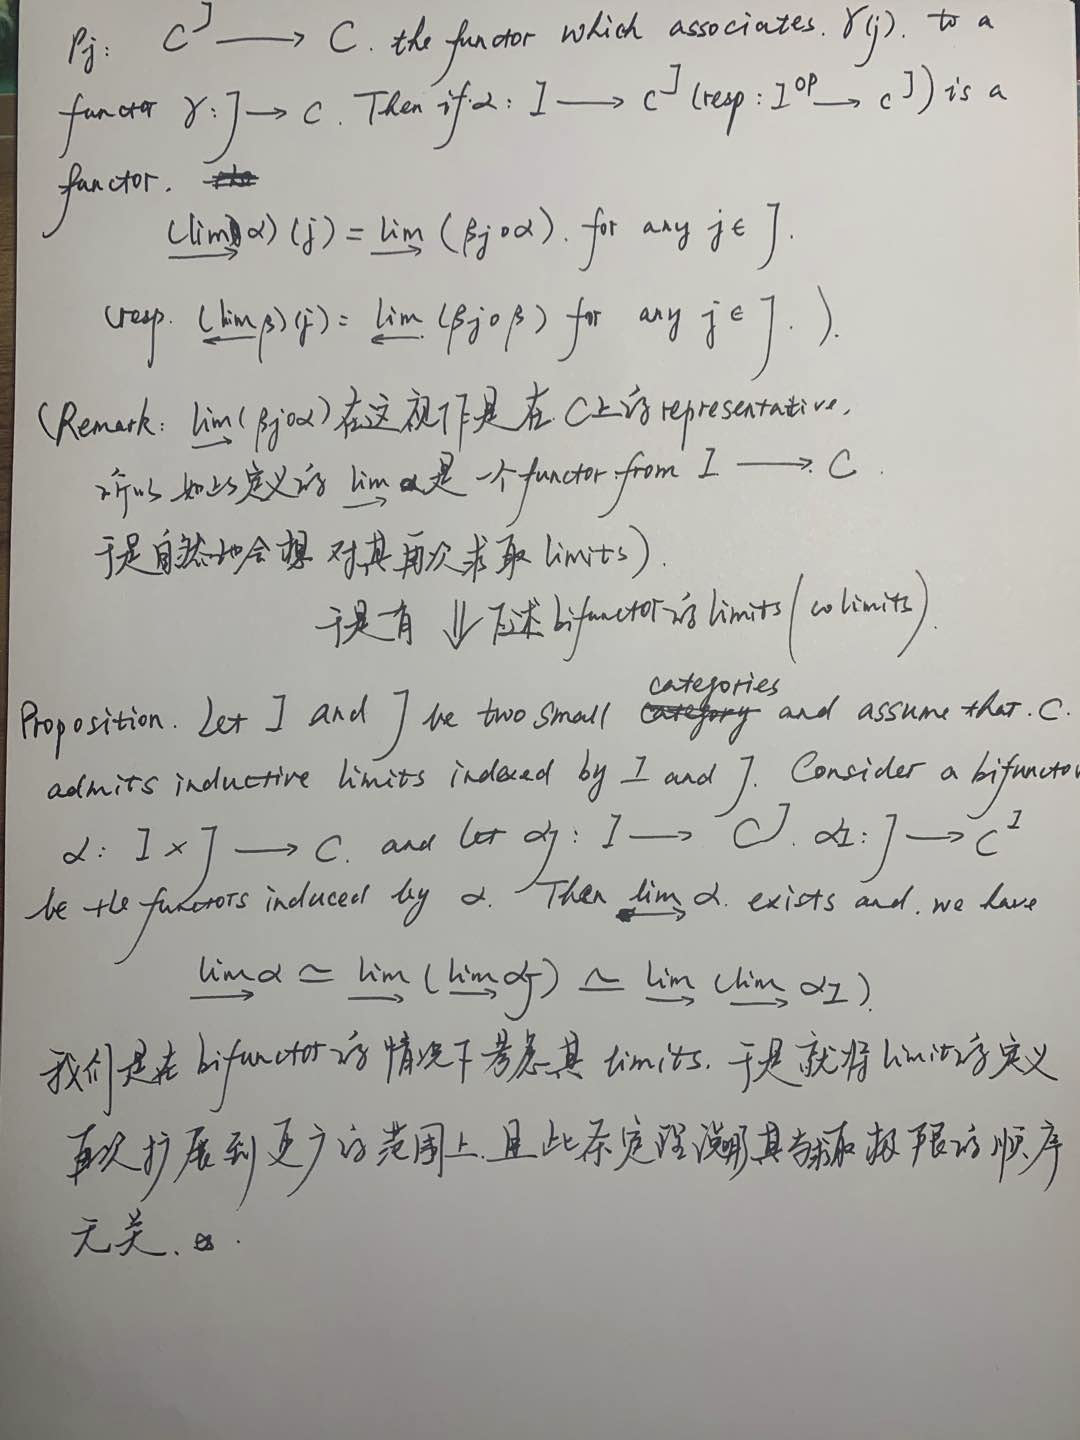 ρj: C^J ⟶ C. the functor which associates. γ(j). to a
functor γ: J → C. Then if α: I ⟶ C^J (resp: I^op → C^J) is a
functor.
(lim→ α)(j) = lim→ (βj∘α). for any j ∈ J.
(resp. (lim← β)(j) = lim← (βj∘β) for any j ∈ J. ).
(Remark: lim→ (βj∘α) 在这视作是在 C上的representative,
所以如此定义的 lim→ α是一个functor from I ⟶ C.
于是自然地会想对其再次求取 limits).
于是有 ⇓ 下述bifunctor的limits (colimits).
Proposition. Let I and J be two small categories and assume that. C.
admits inductive limits indexed by I and J. Consider a bifunctor
α: I × J ⟶ C. and let αJ: I ⟶ C^J. αI: J ⟶ C^I
be the functors induced by α. Then lim→ α. exists and. we have
lim→ α ≃ lim→ (lim→ αJ) ≃ lim→ (lim→ αI).
我们是在bifunctor的情况下考虑其 limits. 于是就将limit的定义
再次扩展到更广的范围上. 且此条定理说明其与求取极限的顺序
无关.